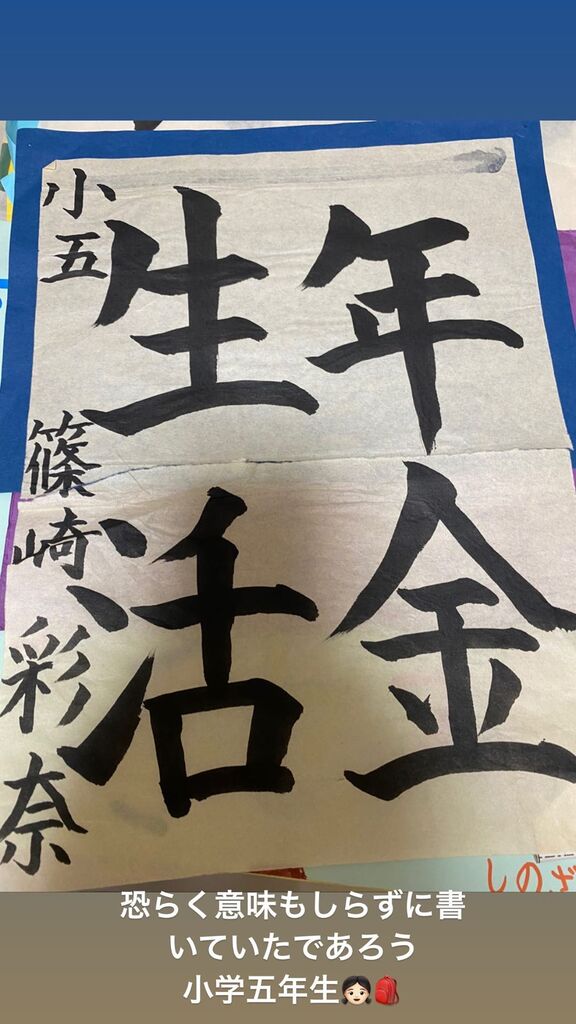 年金
生活
小五
篠崎彩奈
しのざ
恐らく意味もしらずに書
いていたであろう
小学五年生👧🏻🎒